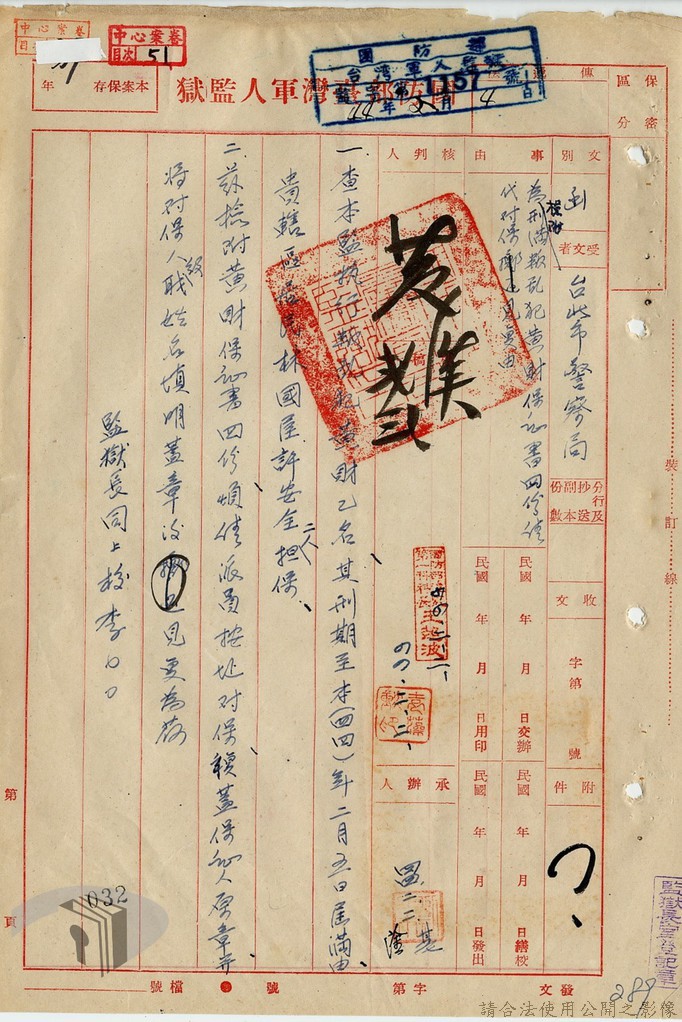 中心案卷
目次
中心案卷
目次 51
年
本案保存
國防部臺灣軍人監獄
國防部
台灣軍人監獄
1157號
44年2月4日
保密區分
文別
函
受文者
台北市警察局
分行及抄送副本份數
收文
字第
號
附件
事由
為刑滿叛亂犯黃財保証書四份請
代对保擲還見复由
民國
年
月
日交辦
民國
年
月
日繕校
民國
年
月
日用印
民國
年
月
日發出
核判人
承辦人
四四、二、二、
一、查本監执行叛乱犯黃財乙名其刑期至本(四四)年二月五日屆滿由
貴轄區居民林國屋許安全二人担保、
二、茲檢附黃財保証書四份煩請派員按址对保積蓋保証人原章并
將对保人級職姓名填明蓋章後擲還見复為荷
監獄長同上校李
裝訂線
第
頁
032
檔號
號
字第
發文
289
請合法使用公開之影像